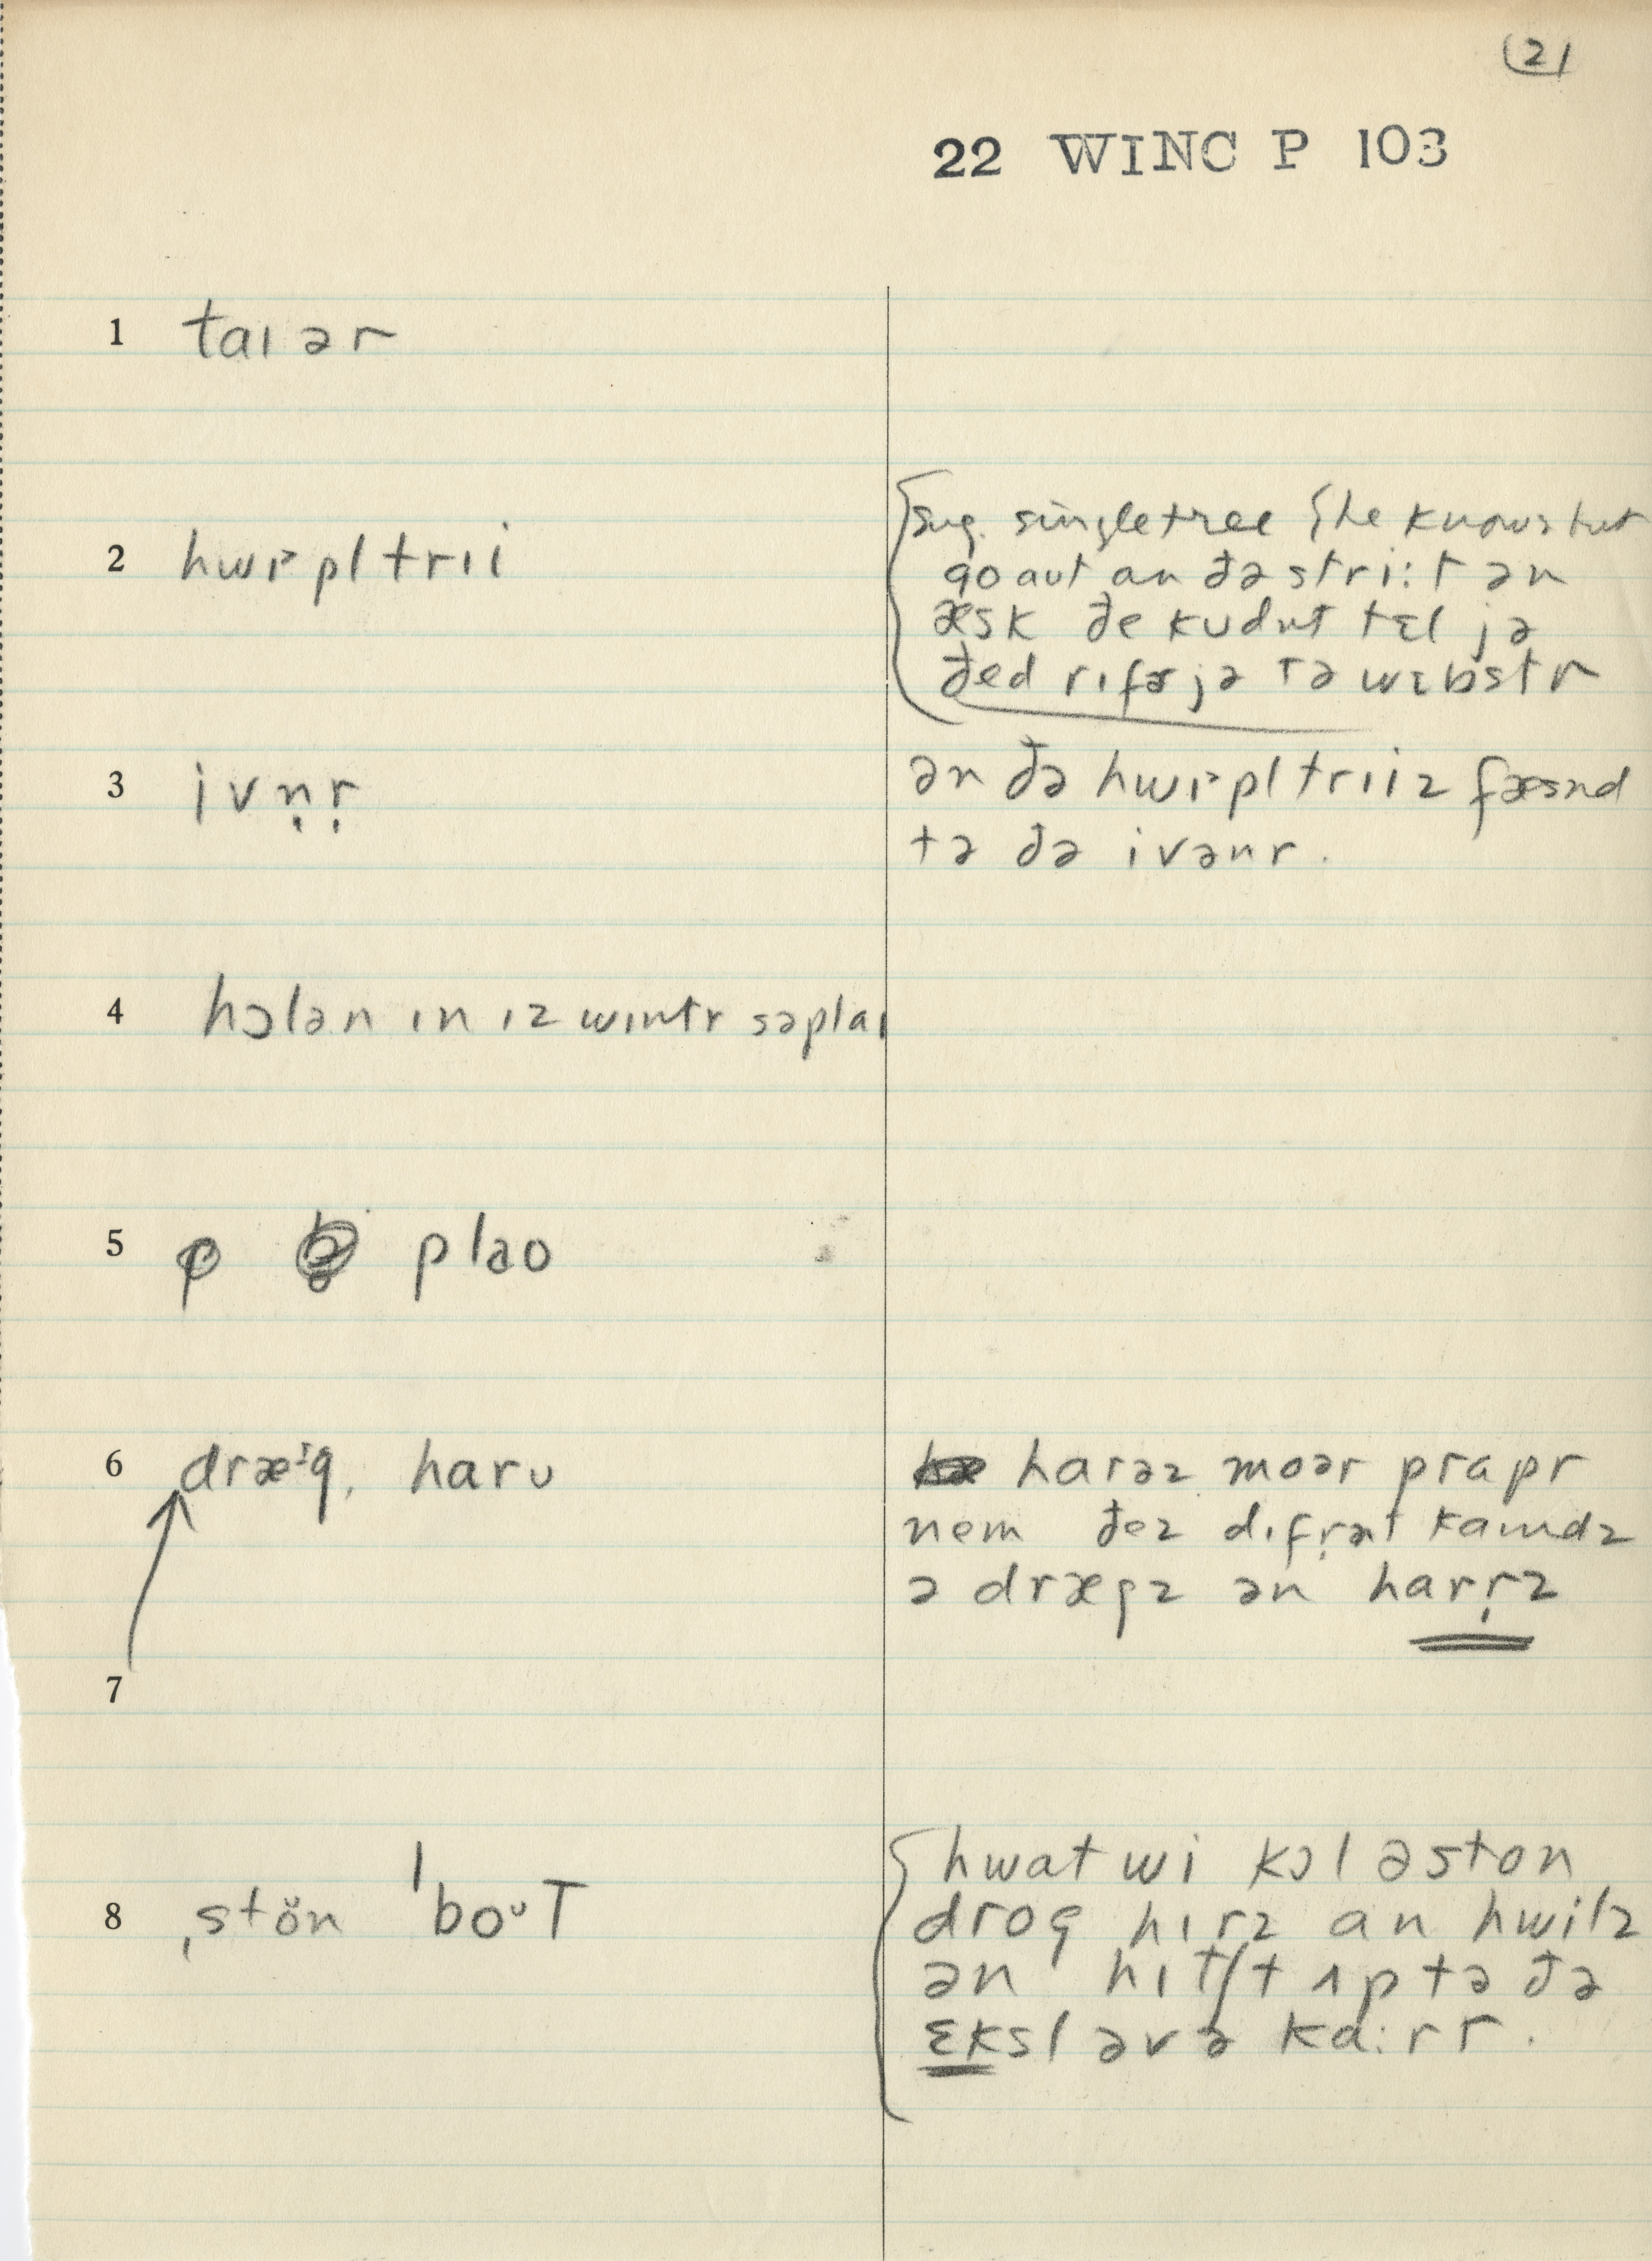 21
22 WINC P 103
1 taɪər
2 hwɪpl trɪi
sug. singletree {he knows but
go aut an ðə striːt ən
æsk ðe kudnt tɛl jə
ðed rɪfɚ jə tə wɛbstr
3 ivn̩r̩
ən ðə hwɪpl triiz fæsnd
tə ðə ivənr.
4 hɔlən ɪn ɪz wɪntr səplaɪ
5 plao
6 dræᶦg, haru
harəz moər prapr
nem ðez dɪfr̩ənt kaɪndz
ə drægz ən harr̩z
7
8 ˌstön ˈboᶷT
hwat wi kɔl əston
drog hɪrz an hwilz
ən hɪtʃt ʌp tə ðə
ɛksl əv ə kɑːrr.